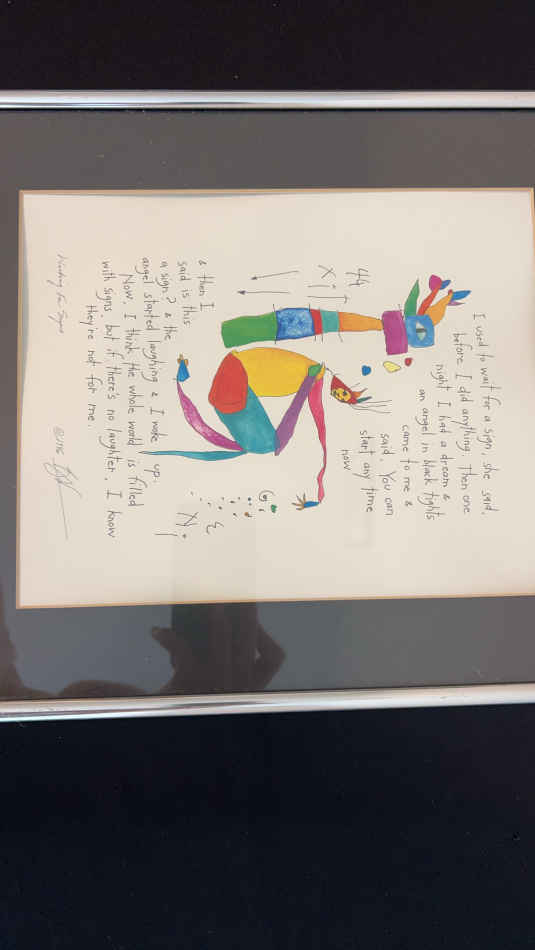 I used to wait for a sign, she said,
before I did anything. Then one
night I had a dream &
an angel in black tights
came to me &
said, You can
start any time
now
& then I
said is this
a sign? & the
angel started laughing & I woke up.
Now, I think the whole world is filled
with signs, but if there's no laughter, I know
they're not for me.